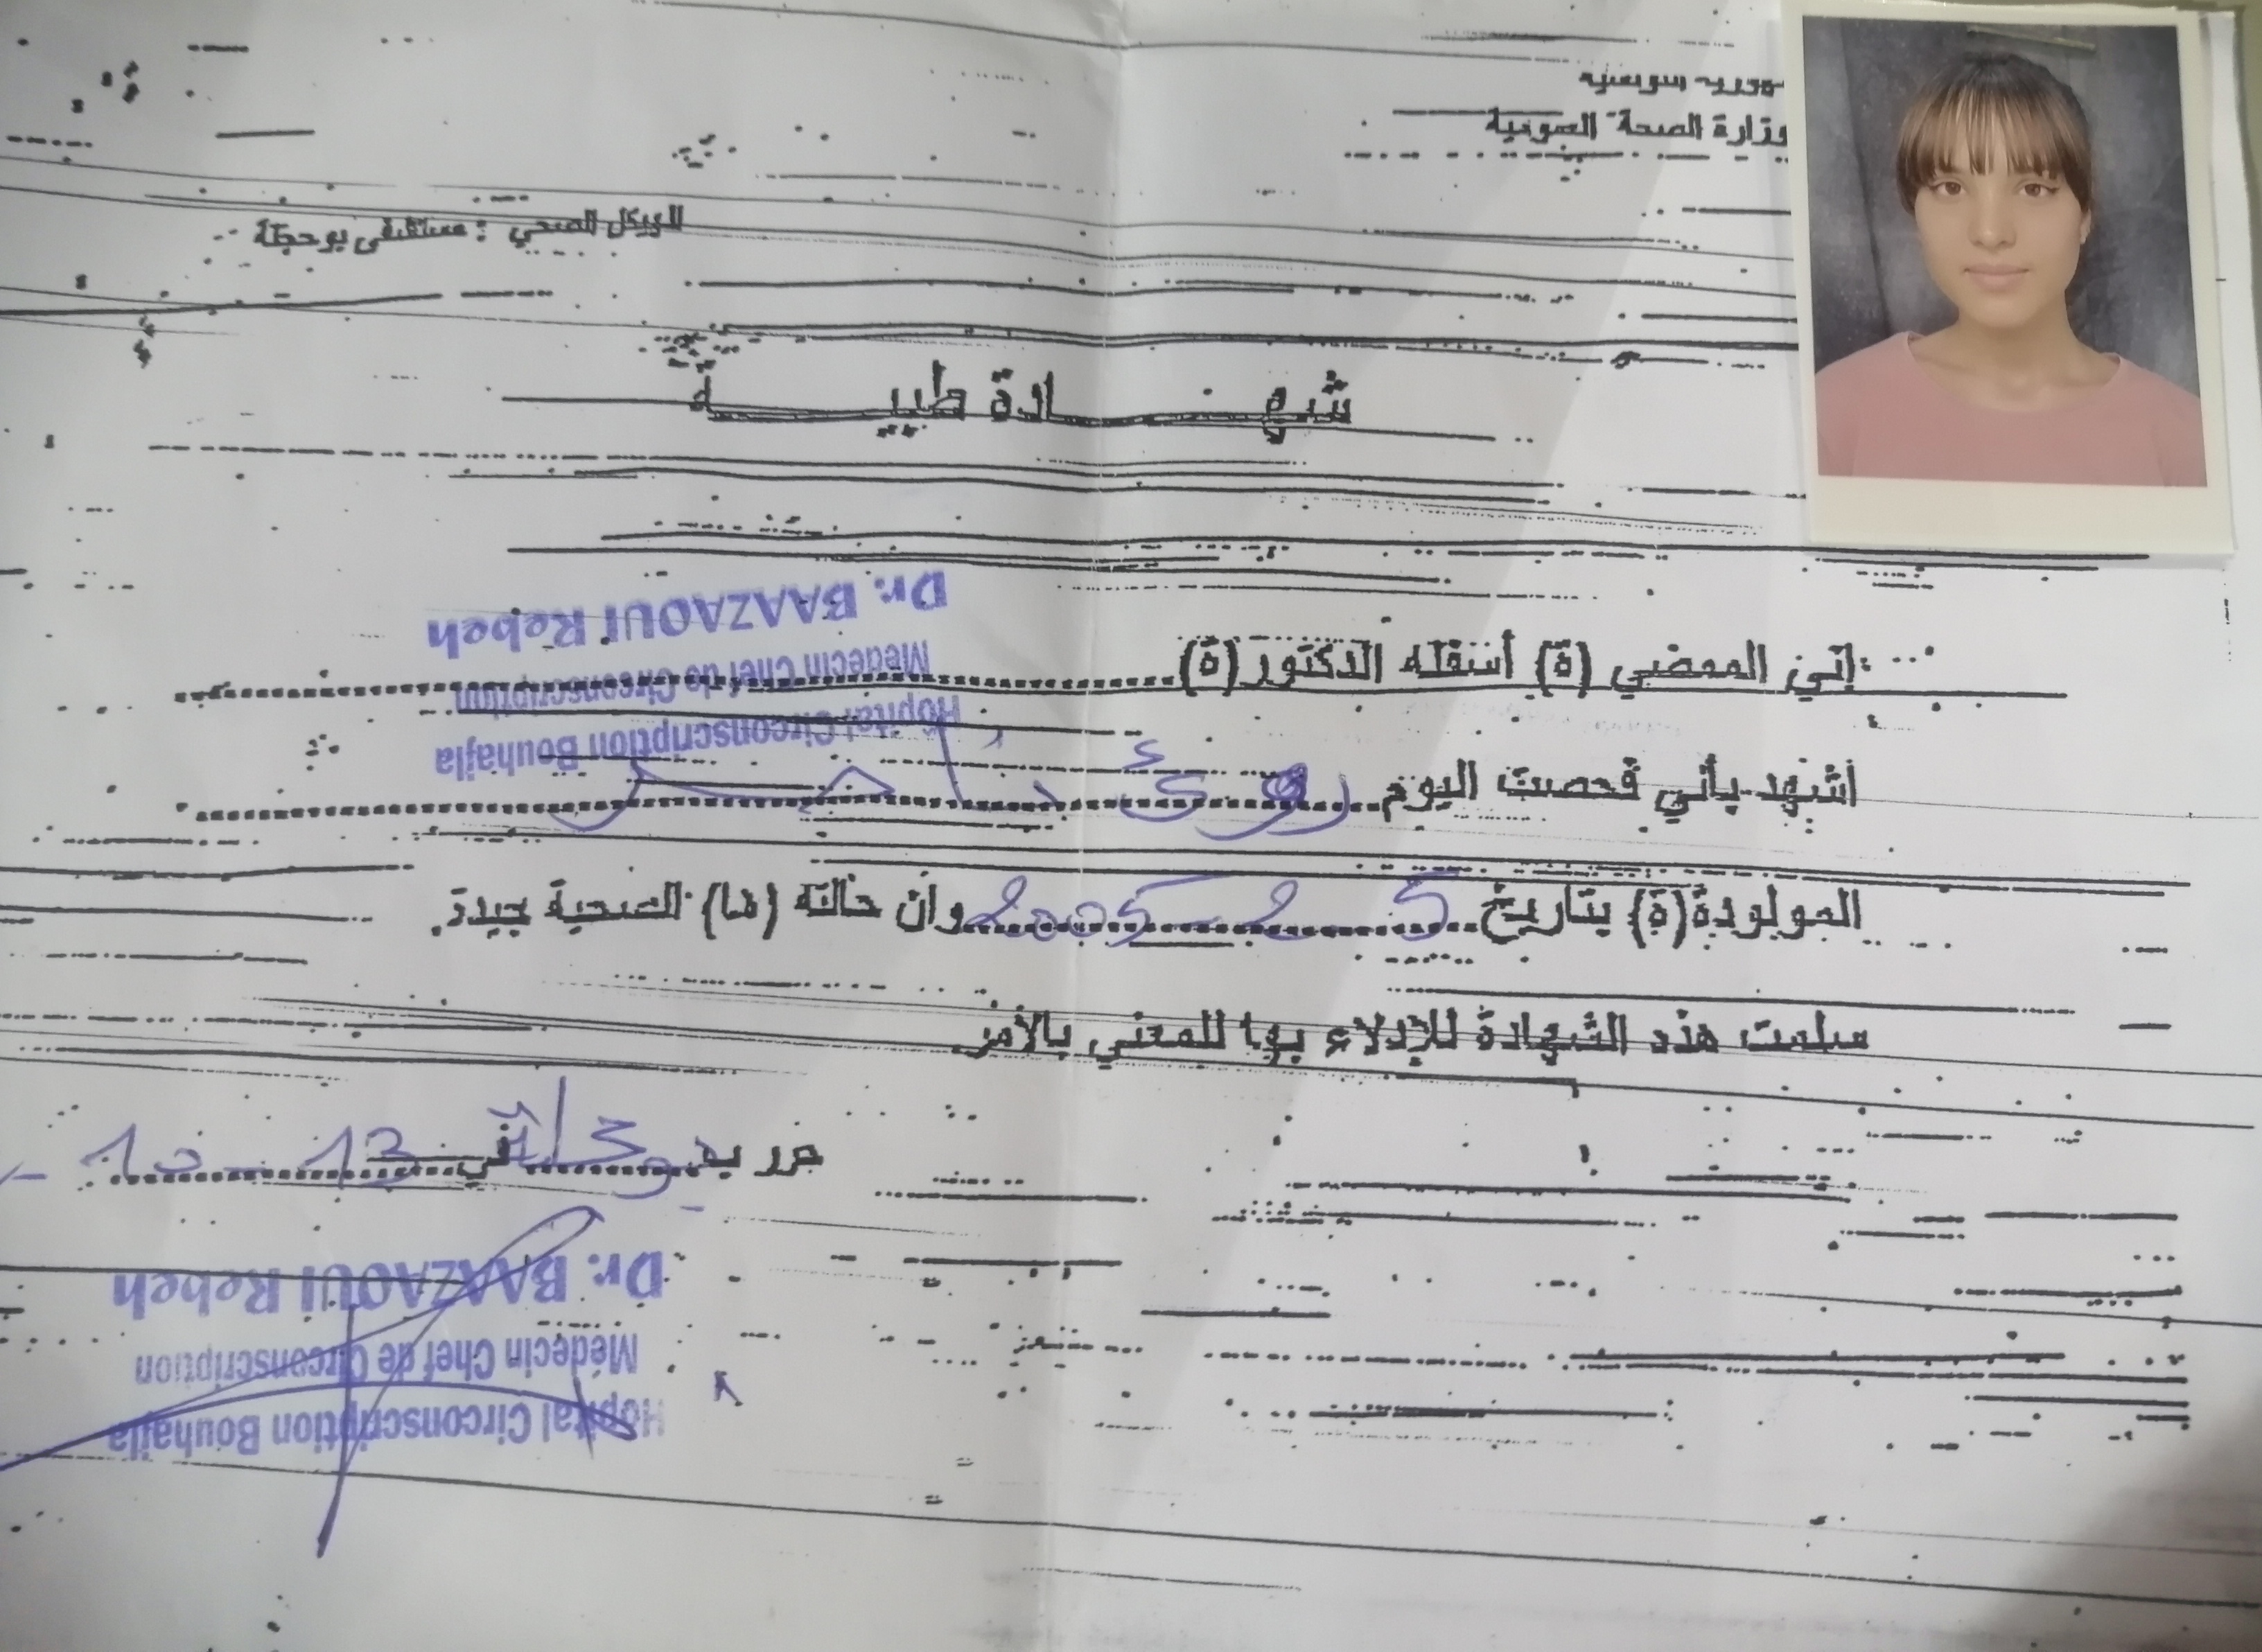 وزارة الصحة العمومية
الهيكل الصحي : مستشفى بوحجلة
شهـــــادة طبيـــــة
Dr. BAAZAOUI Rebeh
Médecin Chef de Circonscription
Hôpital Circonscription Bouhajla
إني الممضي (ة) أسفله الدكتور(ة)
أشهد بأني فحصت اليوم
المولودة(ة) بتاريخ 5 - 2 - 2005 وأن حالته (ها) الصحية جيدة.
سلمت هذه الشهادة للإدلاء بها للمعني بالأمر.
حرر بـ بوحجلة في 13 - 10 -
Dr. BAAZAOUI Rebeh
Médecin Chef de Circonscription
Hôpital Circonscription Bouhajla